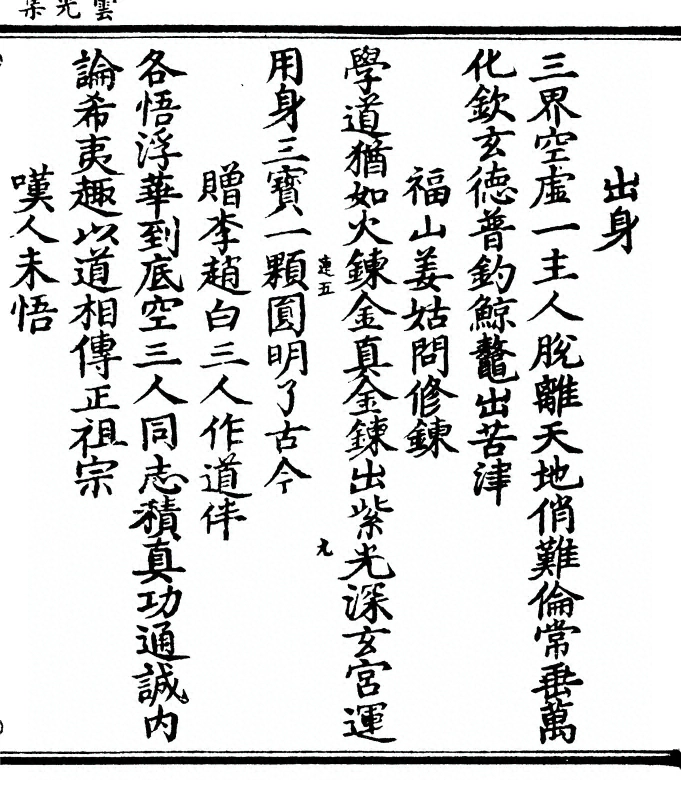 雲光集
出身
三界空虛一主人脫離天地俏難倫常垂萬
化欽玄德普釣鯨鼇出苦津
福山姜姑問修鍊
學道猶如火鍊金真金鍊出紫光深玄宮運
用身三寶一顆圓明了古今
連五
九
贈李趙白三人作道伴
各悟浮華到底空三人同志積真功通誠內
論希夷趣以道相傳正祖宗
嘆人未悟